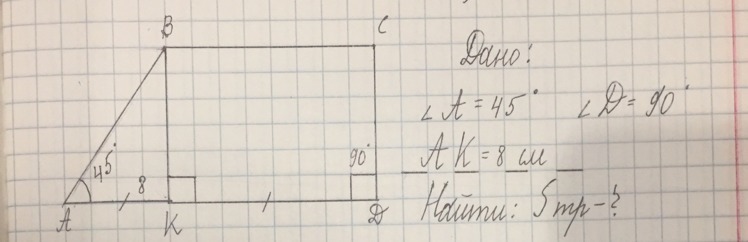 B C
45° 8 90°
A K D
Дано:
∠A = 45° ∠D = 90°
AK = 8 см
Найти: Sтр-?